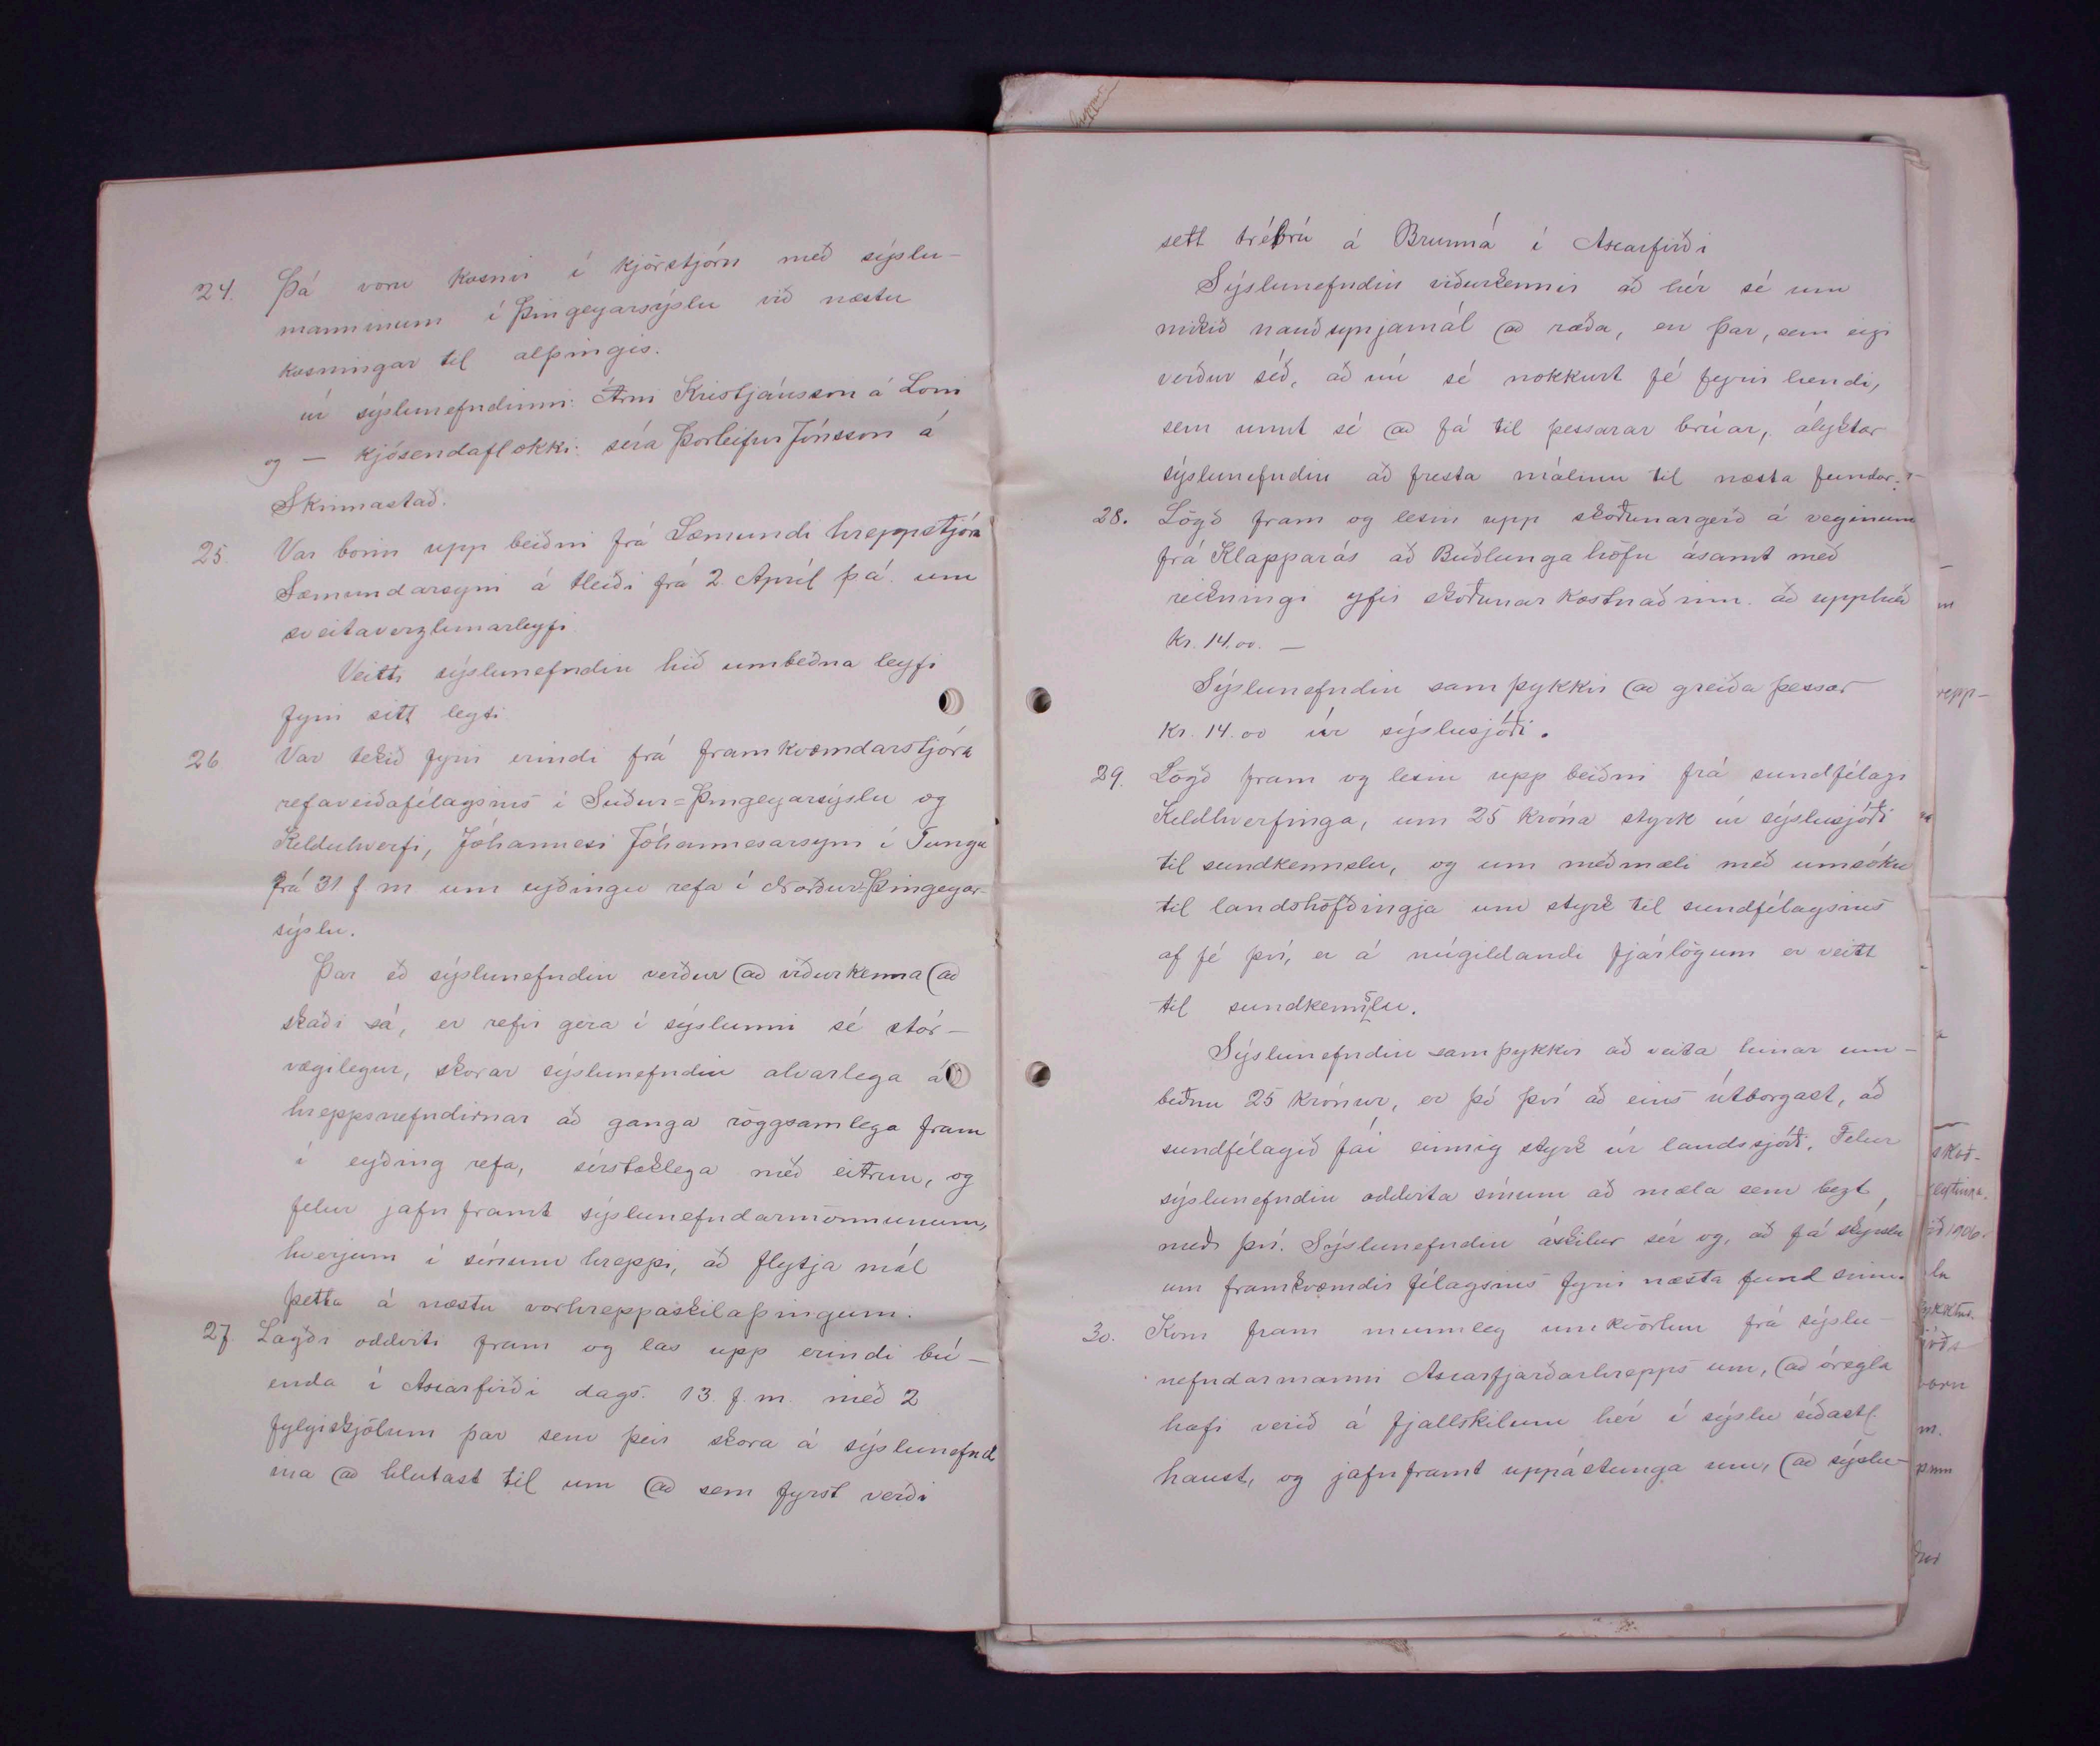 24. Þá voru kosnir í kjörstjórn með sýslu-
manninum í Þingeyarsýslu við næstu
kosningar til alþingis.
úr sýslunefndinni: Árni Kristjánsson á Loni
og — kjósendaflokki: séra Þorleifur Jónsson á
Skinnastað.
25. Var borin upp beiðni frá Sæmundi hreppstjóra
Sæmundarsyni á Heiði frá 2 Apríl þ á. um
sveitaverzlunarleyfi.
Veitti sýslunefndin hið umbeðna leyfi
fyrir sitt leyti.
26 Var tekið fyrir erindi frá framkvæmdarstjóra
refaveiðafélagsins í Suður=Þingeyarsýslu og
Kelduhverfi, Jóhannesi Jóhannesarsyni í Tungu
frá 31 f m um eyðingu refa í Norður=Þingeyar-
sýslu.
Þar eð sýslunefndin verður að viðurkenna að
skaði sá, er refir gera í sýslunni sé stór-
vægilegur, skorar sýslunefndin alvarlega á
hreppsnefndirnar að ganga röggsamlega fram
í eyðing refa, sérstaklega með eitrun, og
felur jafnframt sýslunefndarmönnunum,
hverjum í sínum hreppi, að flytja mál
þetta á næstu vorhreppaskilaþingum.
27. Lagði oddviti fram og las upp erindi bú-
enda í Axarfirði dags. 13. f. m. með 2
fylgiskjölum þar sem þeir skora á sýslunefnd
ina að hlutast til um að sem fyrst verði
sett trébrú á Brunná í Axarfirði
Sýslunefndin viðurkennir að hér sé um
mikið nauðsynjamál að ræða, en þar, sem eigi
verður séð, að nú sé nokkurt fé fyrir hendi,
sem unnt sé að fá til þessarar brúar, ályktar
sýslunefndin að fresta málinu til næsta fundar.-
28. Lögð fram og lesin upp skoðunargerð á veginum
frá Klapparás að Buðlungahöfn ásamt með
reikningi yfir skoðunarkostnaðinn. að upphæð
kr. 14.00. —
Sýslunefndin samþykkir að greiða þessar
kr. 14.00 úr sýslusjóði.
29. Lögð fram og lesin upp beiðni frá sundfélagi
Keldhverfinga, um 25 króna styrk úr sýslusjóði
til sundkennslu, og um meðmæli með umsókn
til landshöfðingja um styrk til sundfélagsins
af fé því, er á núgildandi fjárlögum er veitt
til sundkennslu.
Sýslunefndin samþykkir að veita hinar um-
beðnu 25 krónur, er þó því að eins útborgast, að
sundfélagið fái einnig styrk úr landssjóði. Felur
sýslunefndin oddvita sínum að mæla sem bezt
með því. Sýslunefndin áskilur sér og, að fá skýrslu
um framkvæmdir félagsins fyrir næsta fund sinn.
30. Kom fram munnleg umkvörtun frá sýslu-
nefndarmanni Axarfjarðarhrepps um, að óregla
hafi verið á fjallskilum hér í sýslu síðastl.
haust, og jafnframt uppástunga um, að sýslu-
repp-
skoð-
ið 1906.